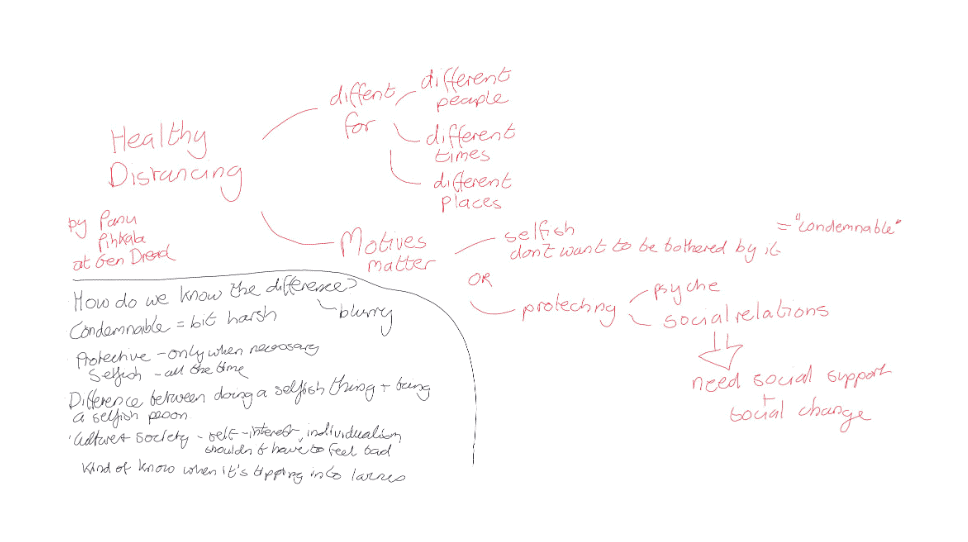 Healthy
Distancing
by Panu
Pihkala
at Gen Dread
diffent
for
different
people
different
times
different
places
Motives
matter
selfish
don't want to be bothered by it
= "condemnable"
OR
protecting
psyche
social relations
need social support
+
social change
How do we know the difference?
blurry
Condemnable = bit harsh
Protective - only when necessary
Selfish - all the time
Difference between doing a selfish thing + being
a selfish person
Culture + society - self-interest, individualism
shouldn't have to feel bad
Kind of know when it's tipping into